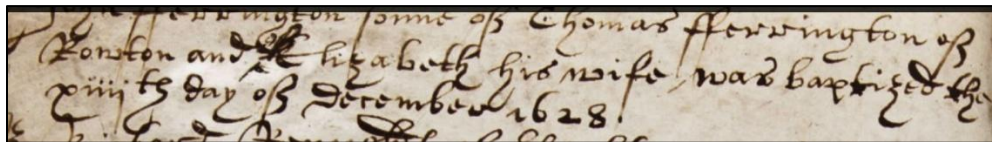 fferrington sonne of Thomas fferrington of
Rowton and Elizabeth his wife was baptized the
xiiiith day of December 1628.